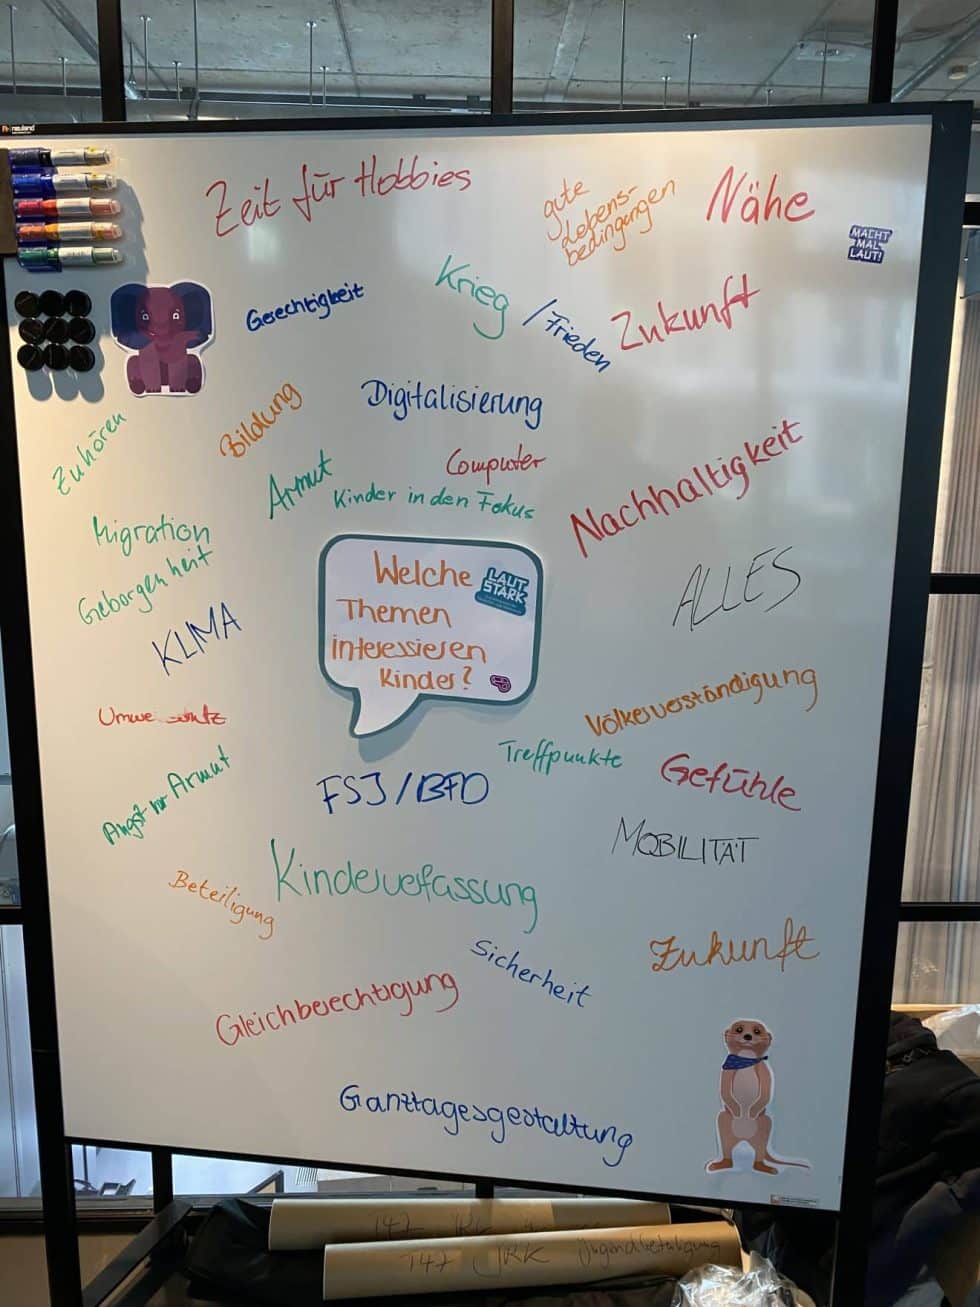 neuland
Zeit für Hobbies
gute
Lebens-
bedingungen
Nähe
MACHT
MAL
LAUT!
Gerechtigkeit
Krieg
/Frieden
Zukunft
Digitalisierung
Bildung
Zuhören
Armut
Computer
Kinder in den Fokus
Nachhaltigkeit
Migration
Geborgenheit
KLIMA
ALLES
Welche
Themen
interessieren
Kinder?
LAUT
STARK
Völkerverständigung
Umwe
Treffpunkte
Gefühle
Angst vor Armut
FSJ/BFD
MOBILITÄT
Kinderverfassung
Beteiligung
Sicherheit
Zukunft
Gleichberechtigung
Ganztagesgestaltung
147 JRK
147 JRK Jugendbeteiligung